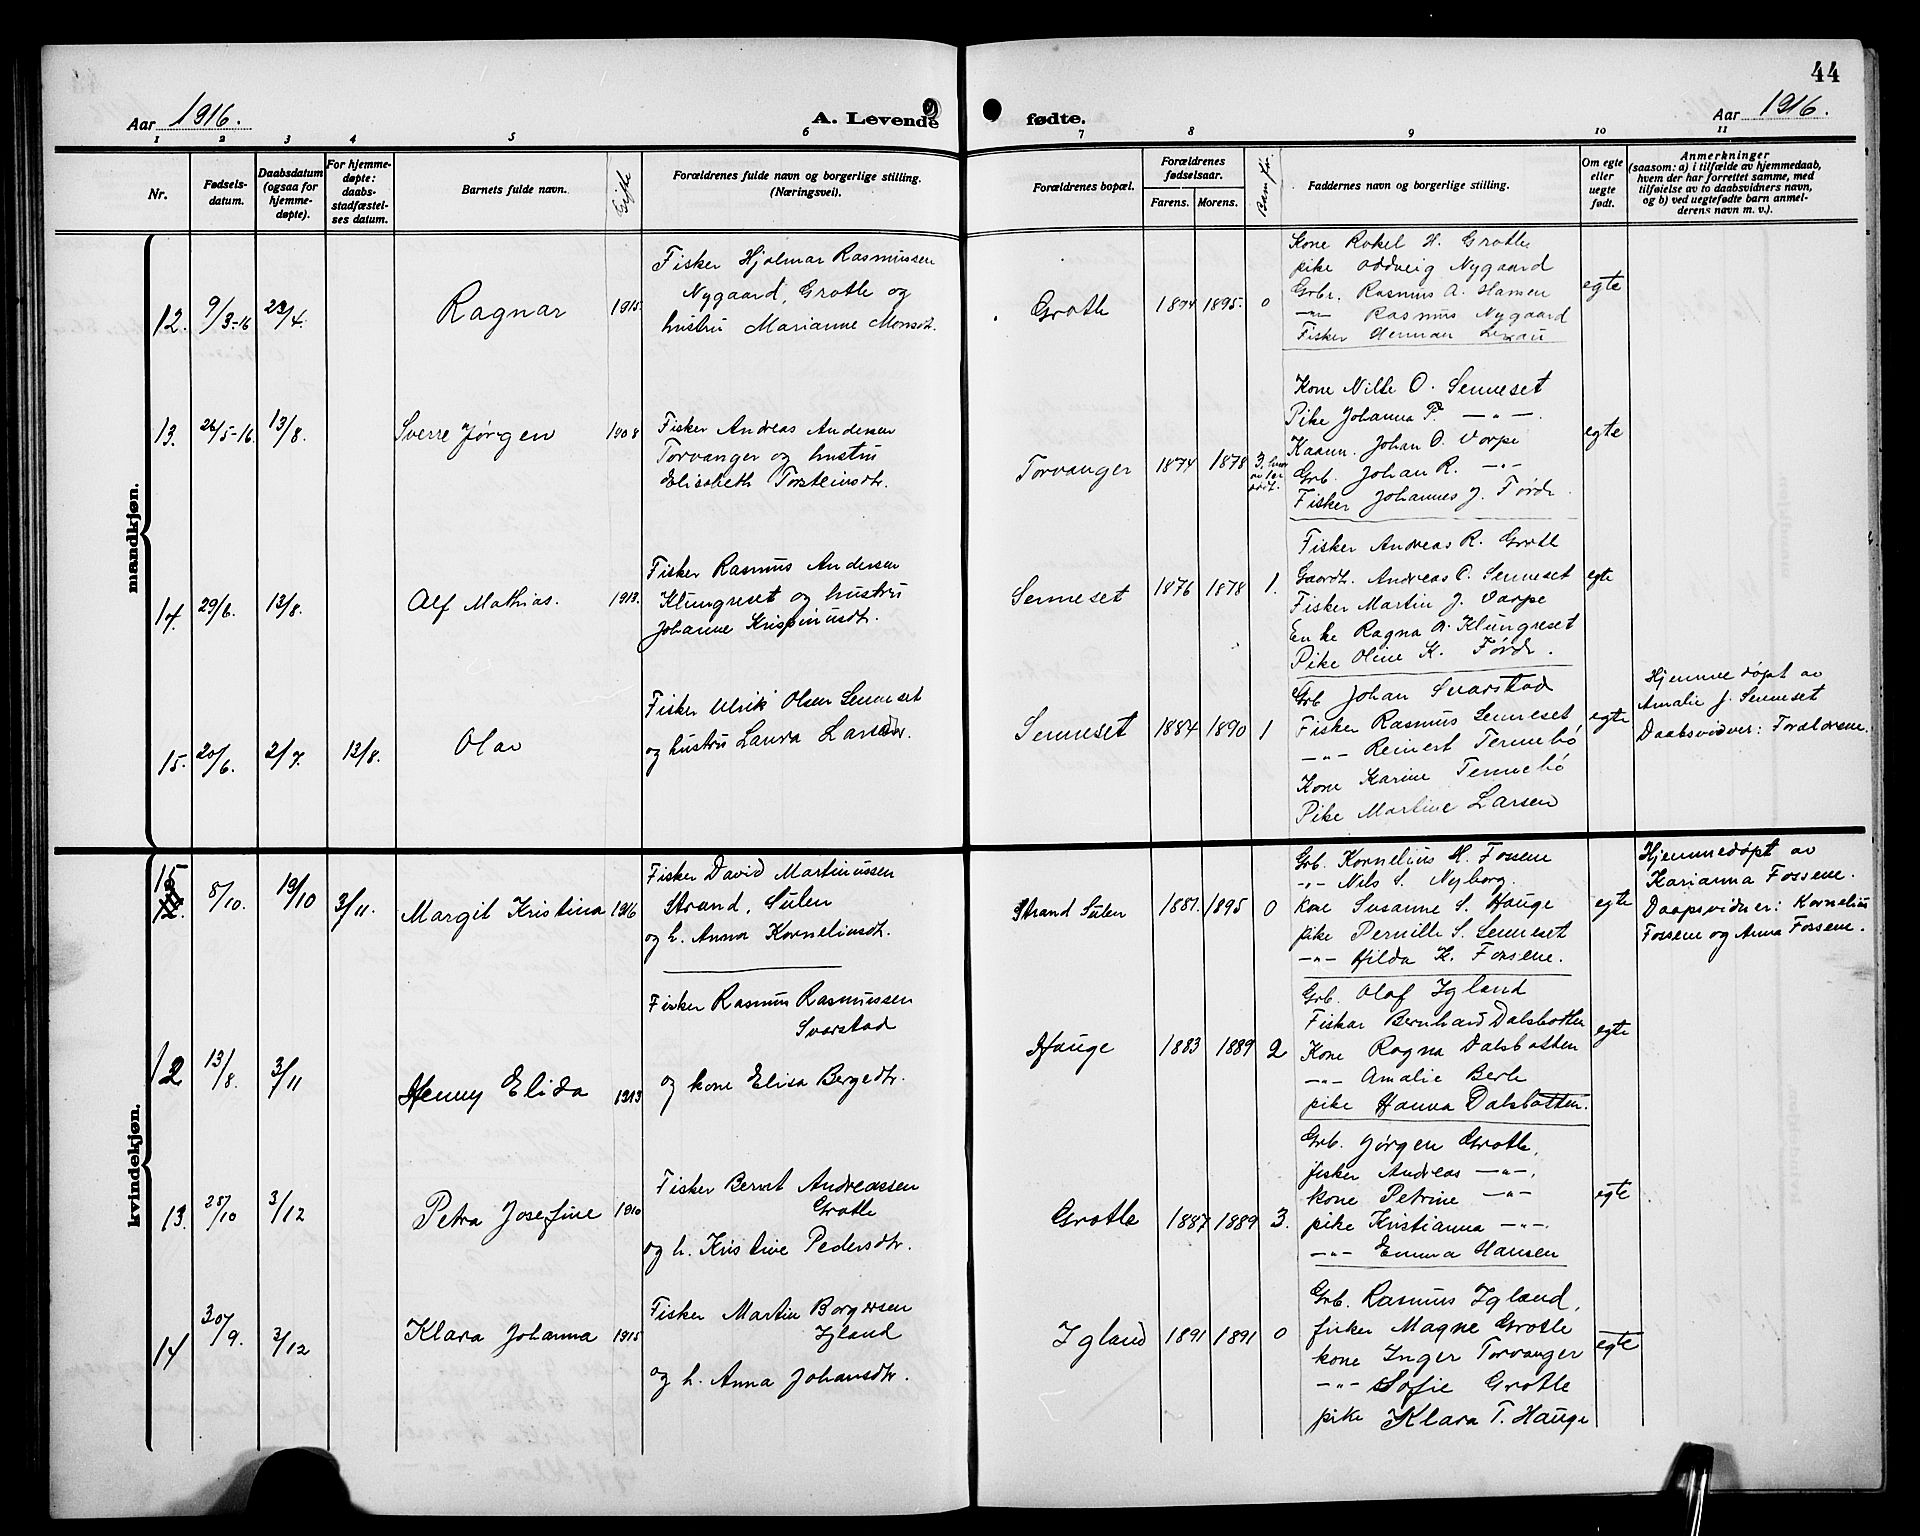 44
Aar 1916.
A. Levende
fødte.
Aar 1916.
1 2 3 4 5 6 7 8 9 10 11
Nr.
Fødsels-
datum.
Daabsdatum
(ogsaa for
hjemme-
døpte).
For hjemme-
døpte:
daabs-
stadfæstel-
ses datum.
Barnets fulde navn.
Gifte
Forældrenes fulde navn og borgerlige stilling.
(Næringsvei).
Forældrenes bopæl.
Forældrenes
fødselsaar.
Farens. Morens.
Faddernes navn og borgerlige stilling.
Om egte
eller
uegte
født.
Anmerkninger
(saasom: a) i tilfælde av hjemmedaab,
hvem der har forrettet samme, med
tilføielse av to daabsvidners navn,
og b) ved uegtefødte barn anmel-
derens navn m. v.).
mandkjøn.
12. 9/3-16 23/4. Ragnar 1915.
Fisker Hjalmar Rasmussen
Nygaard, Grotle og
hustru Marianne Monsdt.
Grotle 1874 1895. 0
Kone Rakel H. Grotle
pike Oddveig Nygaard
Grbr. Rasmus A. Hansen
-"- Rasmus Nygaard
Fisker Herman
egte
13. 26/5-16. 13/8. Sverre Jørgen 1908
Fisker Andreas Andersen
Torvanger og hustru
Elisabeth Torsteinsdtr.
Torvanger 1874 1878 3.
Kone Nille O. Senneset
Pike Johanna P. -"-.
Johan O. Varpe
Grb. Johan R. -"-
Fisker Johannes J. Førde.
egte
14. 29/6. 13/8. Alf Mathias. 1913.
Fisker Rasmus Andersen
Klungreset og hustru
Johanne Krispinusdt.
Senneset 1876 1878 1.
Fisker Andreas R. Grotle
Gaardt. Andreas O. Senneset
Fisker Martin J. Varpe
Enke Ragna A. Klungreset
Pike Oline K. Førde.
egte
15. 20/6. 2/7. 13/8. Olav
Fisker Ulrik Olsen Senneset
og hustru Laura Larsdtr.
Senneset 1884 1890 1
Grb Johan Svarstad
Fisker Rasmus Senneset
-"- Reinert Tennebø
Kone Karine Tennebø
Pike Martine Larsen
egte
Hjemmedøpt av
Amalie J. Senneset
Daabsvidner: Forældrene.
kvindekjøn.
15 8/10. 19/10 3/11. Margit Kristina 1916
Fisker David Martinussen
Strand, Sulen
og h. Anna Korneliusdt.
Strand Sulen 1887. 1895 0
Grb. Kornelius H. Fossene
-"- Nils S. Nyborg.
kone Susanne S. Hauge
pike Pernille S. Senneset
-"- Hilda K. Fossene.
egte
Hjemmedøpt av
Karianna Fossene.
Daapsvidner: Kornelius
Fossene og Anna Fossene.
12 13/8. 3/11 Henny Elida 1913
Fisker Rasmus Rasmussen
Svarstad
og kone Elisa Bergedtr.
Hauge 1883 1889 2
Grb. Olaf Igland
Fisker Bernhard Dalsbotten
Kone Ragna Dalsbotten
-"- Amalie Berle
pike Hanna Dalsbotten.
egte
13. 25/10 3/12 Petra Josefine 1910
Fisker Bernt Andreassen
Grotle
og h. Kristine Pedersdtr.
Grotle 1887 1889 3.
Grb. Jørgen Grotle,
fisker Andreas -"-,
kone Petrine -"-
pike Kristianna -"-.
-"- Emma Hansen
egte
14 30/9. 3/12 Klara Johanna 1915
Fisker Martin Borgersen
Igland
og h. Anna Johansdtr.
Igland 1891 1891 0
Grb. Rasmus Igland,
fisker Magne Grotle
kone Inger Torvanger
-"- Sofie Grotle
pike Klara T. Hauge
egte